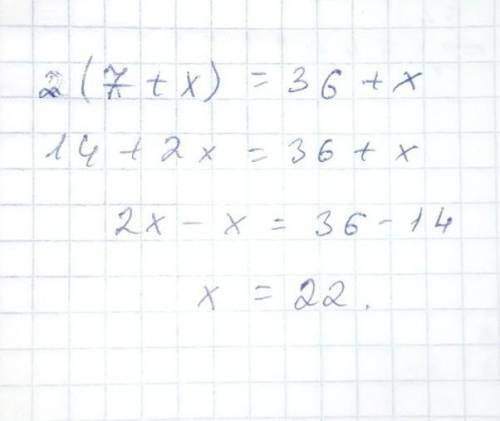 2(7 + x) = 36 + x
14 + 2x = 36 + x
2x - x = 36 - 14
x = 22.